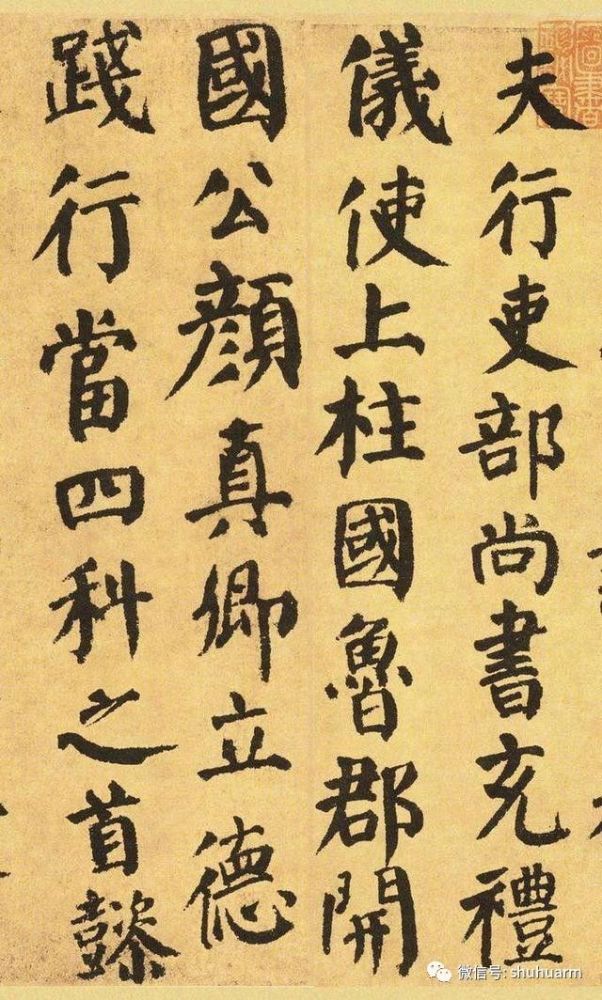 夫行吏部尚書充禮
儀使上柱國魯郡開
國公顏真卿立德
踐行當四科之首懿
微信号: shuhuarm